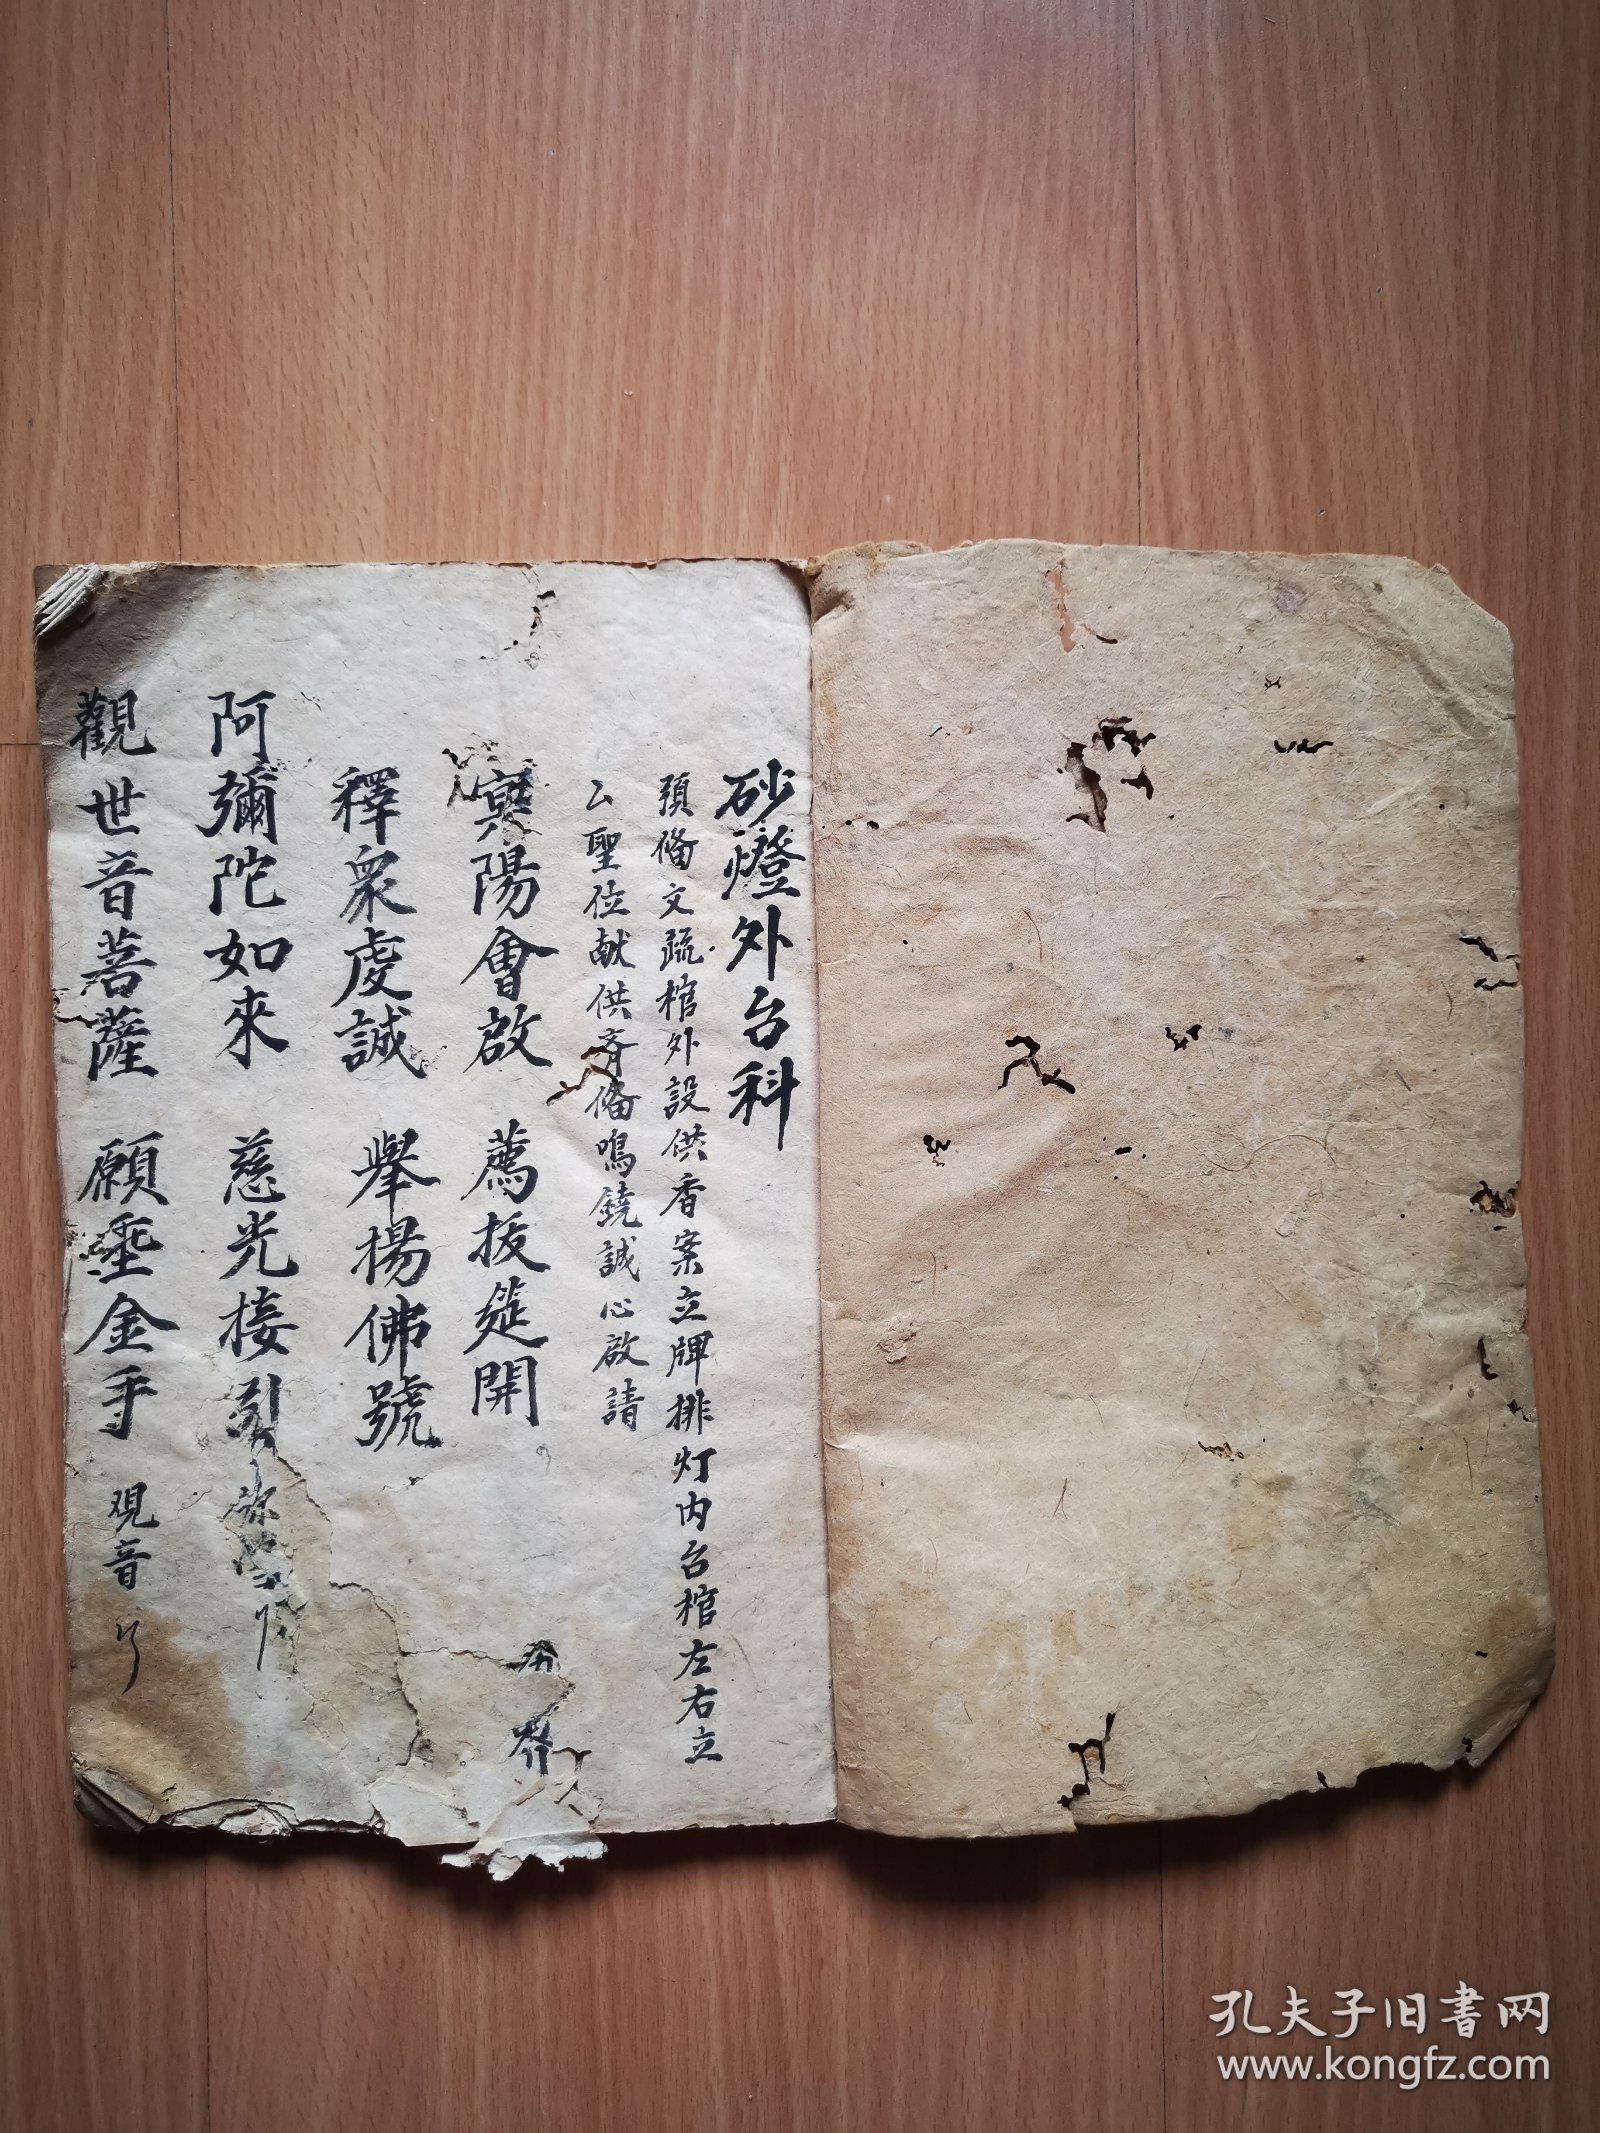 砂燈外台科
預俻文疏棺外設供香案立牌排灯内台棺左右立
厶聖位献供斉俻鳴鐃誠心啟請
冥陽會啟 薦拔筵開
釋衆虔誠 舉揚佛號
齊
阿彌陀如來 慈光接引
觀世音菩薩 願垂金手 观音
孔夫子旧书网
www.kongfz.com